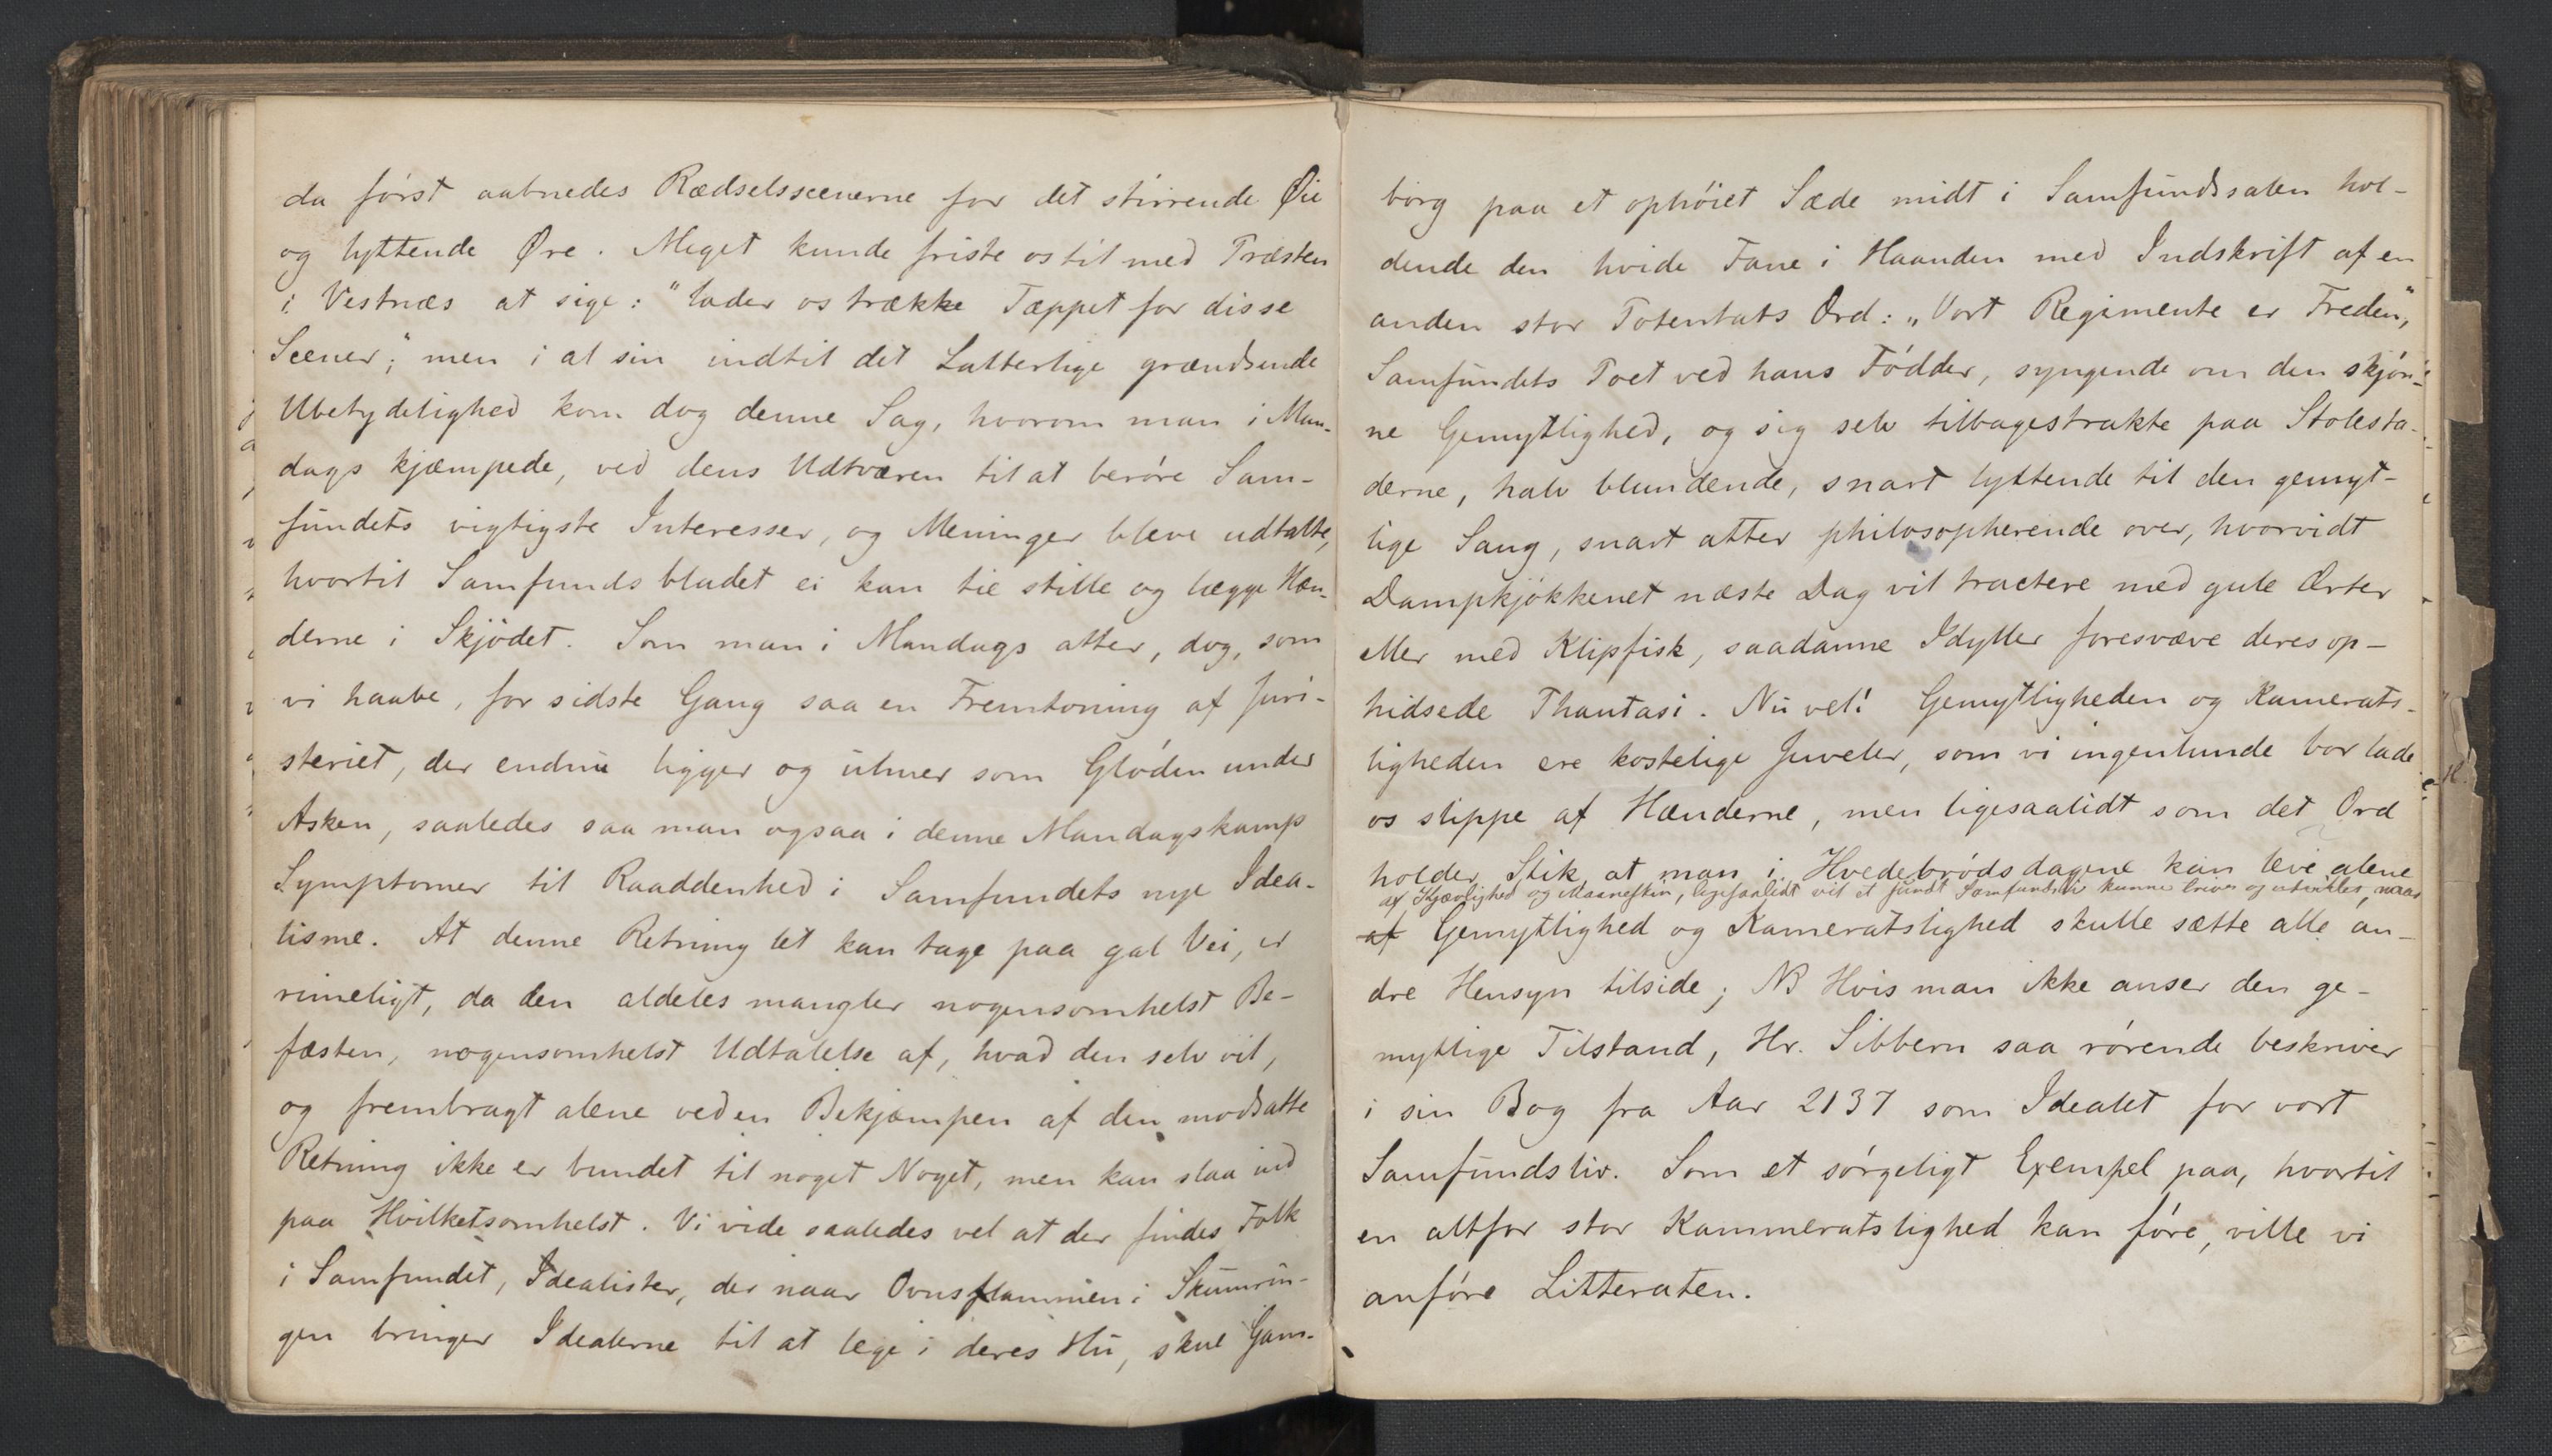 da først aabnedes Rædselsscenerne for det stirrende Øie
og lyttende Øre. Meget kunde friste os til med Præsten
i Vestnæs at sige: "lader os trække Tæppet for disse
Scener;" men i al sin indtil det Latterlige grændsende
Ubetydelighed kom dog denne Sag, hvorom man i Man-
dags kjæmpede, ved dens Udtværen til at berøre Sam-
fundets vigtigste Interesser, og Meninger bleve udtalte,
hvortil Samfundsbladet ei kan tie stille og lægge Hæn-
derne i Skjødet. Som man i Mandags atter, dog, som
vi haabe, for sidste Gang saa en Fremtoning af Juri-
steriet, der endnu ligger og ulmer som Gløden under
Asken, saaledes saa man ogsaa i denne Mandagskamp
Symptomer til Raaddenhed i Samfundets nye Idea-
lisme. At denne Retning let kan tage paa gal Vei, er
rimeligt, da den aldeles mangler nogensomhelst Be-
fæsten, nogensomhelst Udtalelse af, hvad den selv vil,
og frembragt alene ved en Bekjæmpen af den modsatte
Retning ikke er bundet til noget Noget, men kan slaa ind
paa Hvilketsomhelst. Vi vide saaledes vel at der findes Folk
i Samfundet, Idealister, der naar Ovnsflammen i Skumrin-
gen bringer Idealerne til at lege i deres Hu, skue Gam-
borg paa et ophøiet Sæde midt i Samfundssalen hol-
dende den hvide Fane i Haanden med Indskrift af en
anden stor Potentats Ord: „Vort Regimente er Freden",
Samfundets Poet ved hans Fødder, syngende om den skjøn-
ne Gemytlighed, og sig selv tilbagestrakte paa Stolesta-
derne, halv blundende, snart lyttende til den gemyt-
lige Sang, snart atter philosopherende over, hvorvidt
Dampkjøkkenet næste Dag vil tractere med gule Ærter
eller med Klipfisk, saadanne Idyller foresvæve deres op-
hidsede Phantasi. Nu vel! Gemytligheden og Kamerats-
ligheden ere kostelige Juveler, som vi ingenlunde bør lade
os slippe af Hænderne, men ligesaalidt som det Ord
holder Stik, at man i Hvedebrødsdagene kan leve alene
af Kjærlighed og Maaneskin, ligesaalidt vil et sundt Samfundsliv kunne trives og udvikles, naar
af Gemytlighed og Kameratslighed skulle sætte alle an-
dre Hensyn tilside; NB Hvis man ikke anser den ge-
mytlige Tilstand, Hr. Sibbern saa rørende beskriver
i sin Bog fra Aar 2137 som Idealet for vort
Samfundsliv. Som et sørgeligt Exempel paa, hvortil
en altfor stor Kammeratslighed kan føre, ville vi
anføre Litteraten.